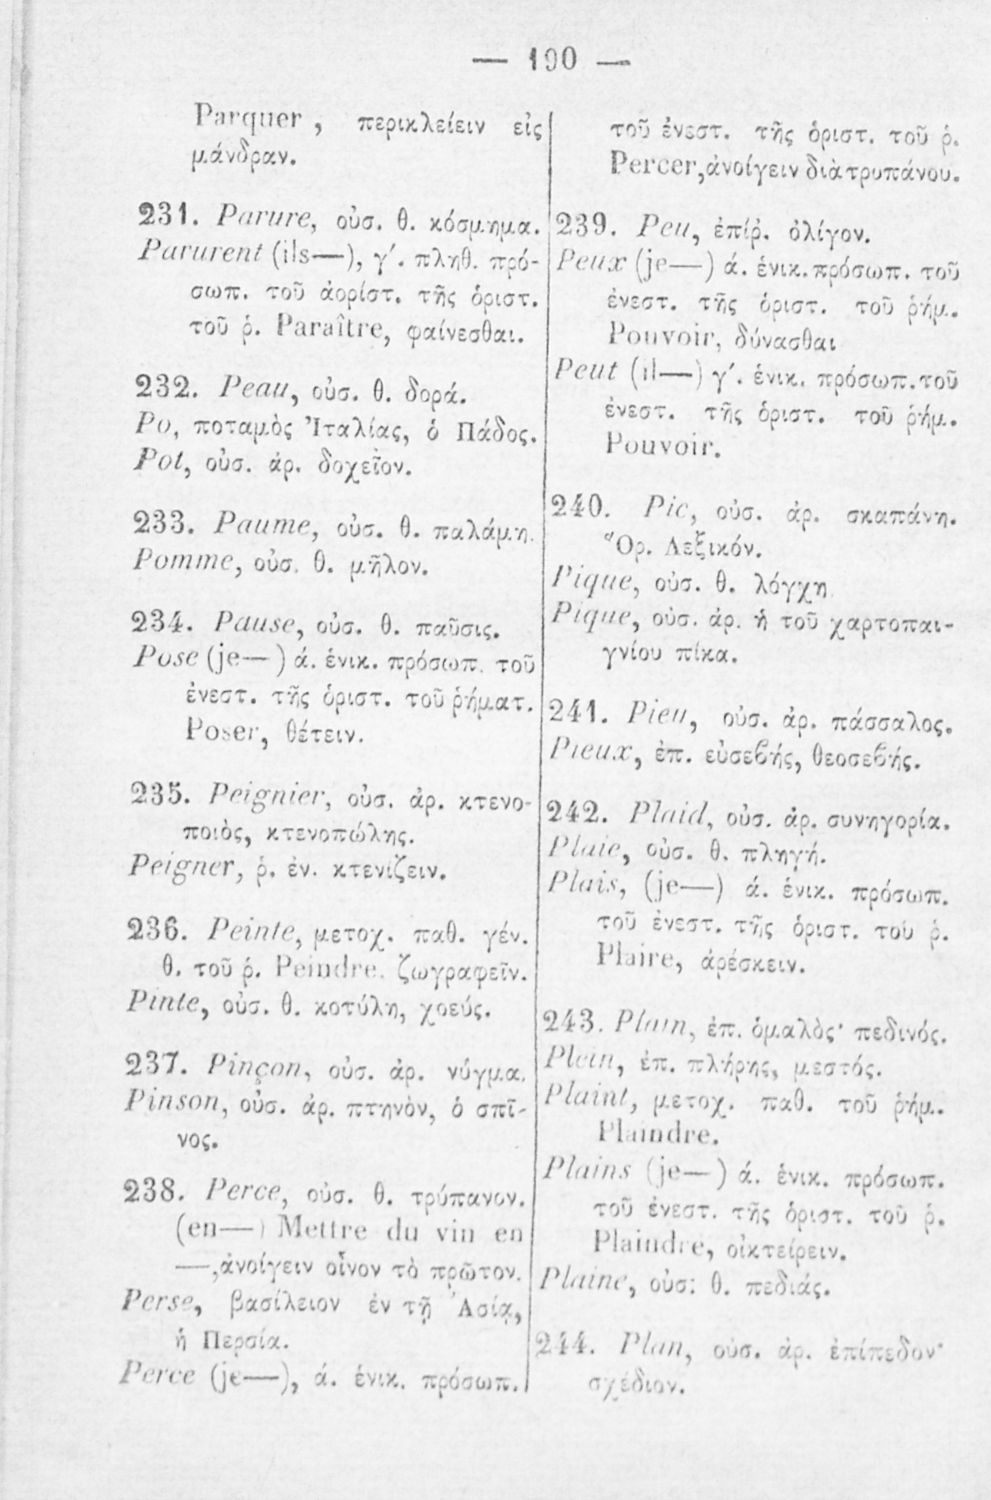 — 190 —
Parquer, περικλείειν εἰς
μάνδραν.
231. Parure, οὐσ. θ. κόσμημα.
Parurent (ils—), γ΄. πληθ. πρό-
σωπ. τοῦ ἀορίστ. τῆς ὁριστ.
τοῦ ῥ. Paraître, φαίνεσθαι.
232. Peau, οὐσ. θ. δορά.
Po, ποταμὸς Ἰταλίας, ὁ Πάδος.
Pot, οὐσ. ἀρ. δοχεῖον.
233. Paume, οὐσ. θ. παλάμη.
Pomme, οὐσ. θ. μῆλον.
234. Pause, οὐσ. θ. παῦσις.
Pose (je—) ά. ἑνικ. πρόσωπ. τοῦ
ἐνεστ. τῆς ὁριστ. τοῦ ῥήματ.
Poser, θέτειν.
235. Peignier, οὐσ. ἀρ. κτενο-
ποιὸς, κτενοπώλης.
Peigner, ῥ. ἐν. κτενίζειν.
236. Peinte, μετοχ. παθ. γέν.
θ. τοῦ ῥ. Peindre. ζωγραφεῖν.
Pinte, οὐσ. θ. κοτύλη, χοεύς.
237. Pinçon, οὐσ. ἀρ. νύγμα.
Pinson, οὐσ. ἀρ. πτηνὸν, ὁ σπῖ-
νος.
238. Perce, οὐσ. θ. τρύπανον.
(en—) Mettre du vin en
—, ἀνοίγειν οἶνον τὸ πρῶτον.
Perse, βασίλειον ἐν τῇ Ἀσίᾳ,
ἡ Περσία.
Perce (je—), ά. ἑνικ. πρόσωπ.
τοῦ ἐνεστ. τῆς ὁριστ. τοῦ ῥ.
Percer, ἀνοίγειν διὰ τρυπάνου.
239. Peu, ἐπίῤ. ὀλίγον.
Peux (je—) ά. ἑνικ. πρόσωπ. τοῦ
ἐνεστ. τῆς ὁριστ. τοῦ ῥήμ.
Pouvoir, δύνασθαι
Peut (il—) γ΄. ἑνικ. πρόσωπ. τοῦ
ἐνεστ. τῆς ὁριστ. τοῦ ῥήμ.
Pouvoir.
240. Pic, οὐσ. ἀρ. σκαπάνη.
Ὅρ. Λεξικόν.
Pique, οὐσ. θ. λόγχη.
Pique, οὐσ. ἀρ. ἡ τοῦ χαρτοπαι-
γνίου πίκα.
241. Pieu, οὐσ. ἀρ. πάσσαλος.
Pieux, ἐπ. εὐσεϐής, θεοσεϐής.
242. Plaid, οὐσ. ἀρ. συνηγορία.
Plaie, οὐσ. θ. πληγή.
Plais, (je—) ά. ἑνικ. πρόσωπ.
τοῦ ἐνεστ. τῆς ὁριστ. τοῦ ῥ.
Plaire, ἀρέσκειν.
243. Plain, ἐπ. ὁμαλὸς· πεδινός.
Plein, ἐπ. πλήρης, μεστός.
Plaint, μετοχ. παθ. τοῦ ῥήμ.
Plaindre.
Plains (je—) ά. ἑνικ. πρόσωπ.
τοῦ ἐνεστ. τῆς ὁριστ. τοῦ ῥ.
Plaindre, οἰκτείρειν.
Plaine, οὐσ: θ. πεδιάς.
244. Plan, οὐσ. ἀρ. ἐπίπεδον·
σχέδιον.